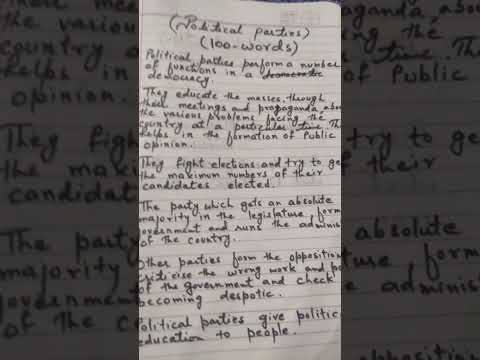 (Political parties)
(100-words)
Political parties perform a number
of functions in a democratic
democracy.
They educate the masses, through
their meetings and propaganda abou
the various problems facing the
country at a particular time. Th
helps in the formation of Public
opinion.
They fight elections and try to ge
the maximum numbers of their
candidates elected.
The party which gets an absolute
majority in the legislature form
government and runs the adminis
of the country.
Other parties form the opposition
criticise the wrong work and po
of the government and check
becoming despotic.
Political parties give politic
education to people.